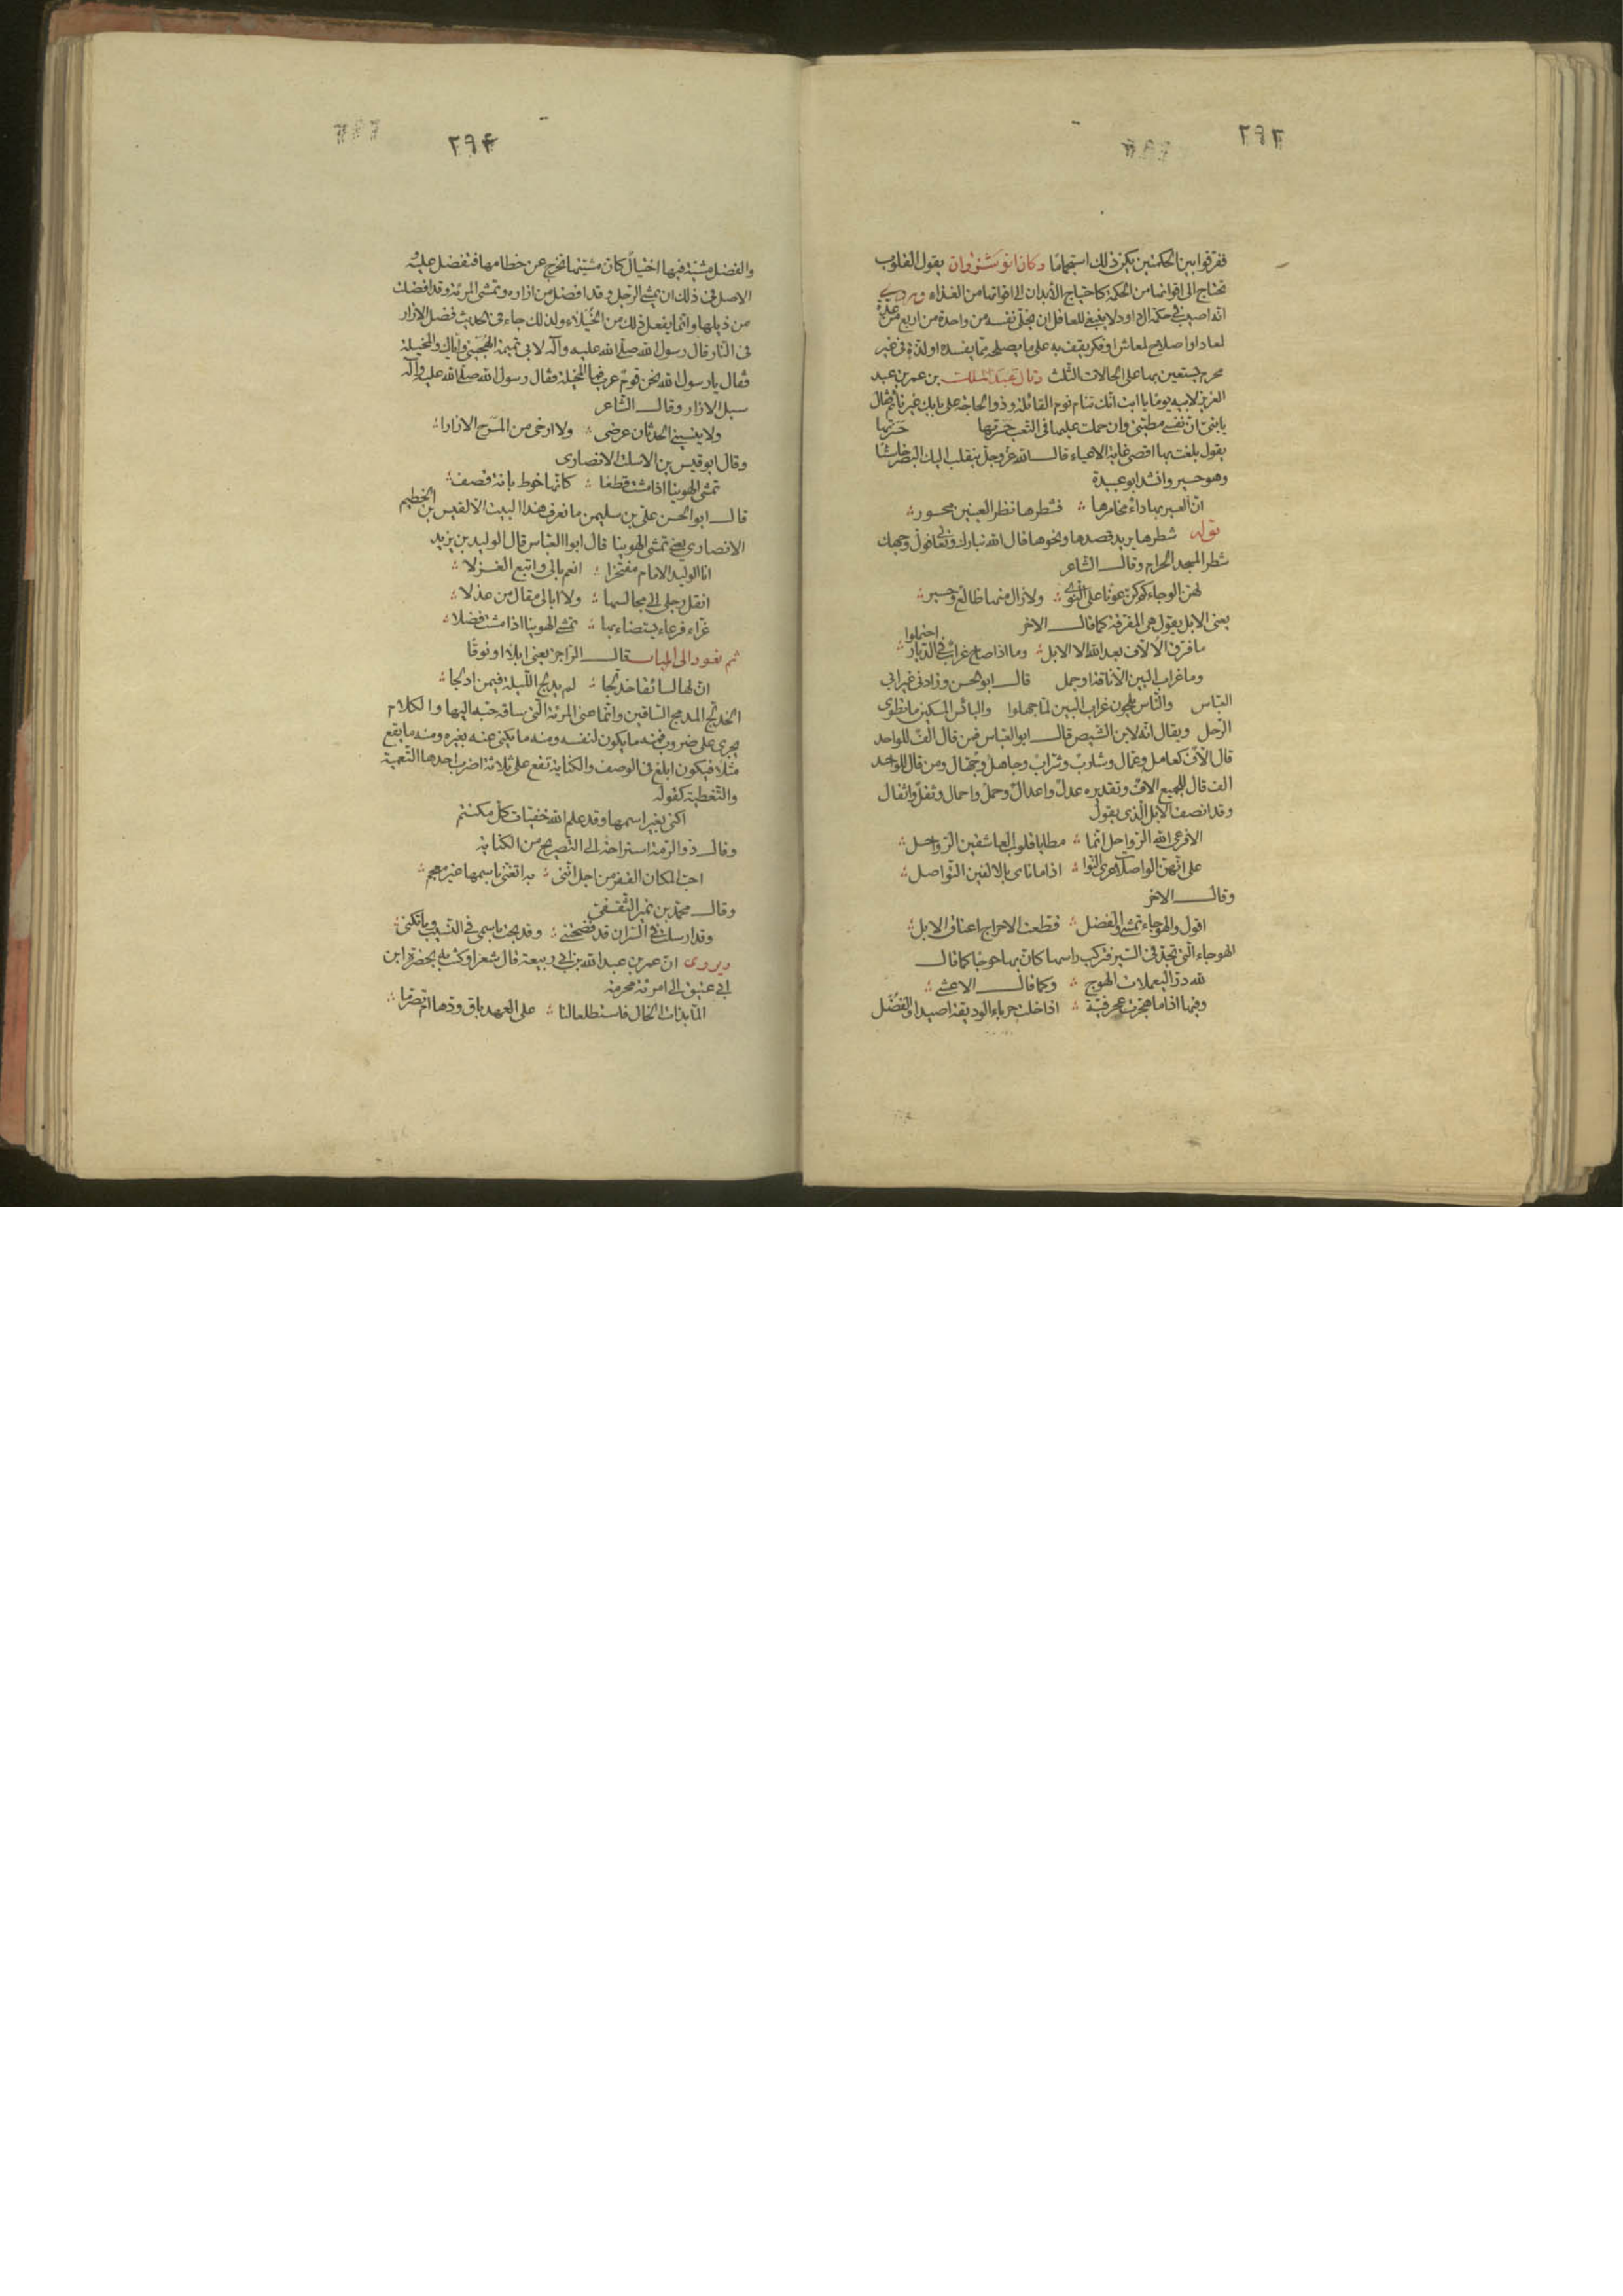 ٢٩٣
ففرقوا بين الحكمتين يكن ذلك استجماما وكان انوشنروان يقول القلوب
تحتاج الى اقواتها من الحكمة كاحتياج الأبدان الى اقواتها من الغذاء ويروى
انه اصيب في حكمة ال داود لا ينبغي للعاقل ان يخلى نفسه من واحدة من اربع من عدة
لمعاد او اصلاح لمعاش او فكر يقف به على ما يصلحه مما يفسده او لذة في غير
محرم يستعين بها على الحالات الثلث وقال عبد الملك بن عمر بن عبد
العزيز لابيه يوما يا ابت انك تنام نوم القائلة وذو الحاجة على بابك غير نائم فقال
يا بنى ان نفسى مطيتى وان حملت عليها في التعب حسرتها حسرتها
يقول بلغت بها اقصى غاية الاعياء قال الله عز وجل ينقلب اليك البصر خاسئا
وهو حسير وانشد ابو عبيدة
ان العسير بها داء مخامرها فشطرها نظر العينين محسور
قوله شطرها يريد قصدها ونحوها قال الله تبارك وتعالى فول وجهك
شطر المسجد الحرام وقال الشاعر
لهن الوجا لم كن عونا على النوى ولا زال منها ظالع وحسير
يعنى الابل يقول هي المفرقة كما قال الاخر
ما فرق الألاف بعد الله الا الابل وما اذا صاح غراب في الديار احتملوا
وما غراب البين الا ناقة او جمل قال ابو الحسن وزادنى غير ابى
العباس والناس يلحون غراب البين لما جهلوا والبائس المسكين ما تطوى
الرحل ويقال انه لابن الشيص قال ابو العباس فمن قال الف للواحد
قال الاف كعامل وعمال وشارب وشراب وجاهل وجهال ومن قال للواحد
الف قال للجميع الاف وتقديره عدل واعدال وحمل واحمال وثقل واثقال
وقد انصف الابل الذى يقول
الا فرعى الله الرواحل انما مطايا قلوب العاشقين الرواحل
على انهن الواصلات عرى النوا اذا ما ناى بالالفين التواصل
وقال الاخر
اقول والهوجاء تمشى والفضل قطعت الاحداج اعناق الابل
الهوجاء التى تجد في السير فتركب راسها كان بها هوجا كما قال
لله در اليعملات الهوج وكما قال الاعشى
وفيها اذا ما هجرت عجرفية اذا خلت حرباء الوديقة اصيدا والفضل
٢٩٤
والفضل مشية فيها اختيال كان مشيتها تخرج عن خطامها فتفضل عليه و
الاصل في ذلك ان يمشى الرجل وقد افضل من ازاره وتمشى المرئة وقد افضلت
من ذيلها وانما يفعل ذلك من الخيلاء ولذلك جاء في الحديث فضل الازار
في النار قال رسول الله صلى الله عليه وآله لابى تميمة الهجيمى واياك والمخيلة
فقال يا رسول الله نحن قوم عرب فما المخيلة فقال رسول الله صلى الله عليه وآله
سبل الازار وقال الشاعر
ولا ينسينى الحدثان عرضى ولا ارخى من المرح الازارا
وقال ابو قيس بن الاسلت الانصارى
تمشى الهوينا اذا مشت قطفا كانها خوط بانة قصف
قال ابو الحسن على بن سليمن ما نعرف هذا البيت الا لقيس بن الخطيم
الانصارى يعنى تمشى الهوينا قال ابو العباس قال الوليد بن يزيد
انا الوليد الامام مفتخرا انعم بالى واتبع الغزلا
انقل رجلى الى مجالسها ولا ابالى مقال من عذلا
غراء فرعاء يستضاء بها تمشى الهوينا اذا مشت فضلا
ثم نعود الى الباب قال الراجز يعنى ابلا او نوقا
ان لها لسائقا خدلجا لم يدلج الليلة فيمن ادلجا
الخدلج المدمج الساقين وانما عنى المرئة التى ساقه حبه اليها والكلام
يجرى على ضروب فمنه ما يكون لنفسه ومنه ما يكنى عنه بغيره ومنه ما يقع
مثلا فيكون ابلغ في الوصف والكناية تقع على ثلاثة اضرب احدها التعمية
والتغطية كقوله
اكنى بغير اسمها وقد علم الله خفيات كل مكتتم
وقال ذو الرمة استراحة الى التصريح من الكناية
احب المكان القفر من اجل اننى به اتغنى باسمها غير معجم
وقال محمد بن نمير الثقفى
وقد ارسلت في السر ان قد فضحتنى وقد بحت باسمى في النسيب وما تكنى
ويروى ان عمر بن عبد الله بن ابى ربيعة قال شعرا وكتب به بحضرة ابن
ابى عتيق الى امرئة محرمة
الما بذات الخال فاستطلعا لنا على العهد باق ودها ام تصرما